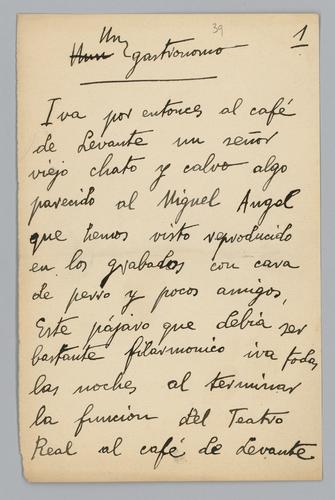 39
1
Un
gastronomo
Iva por entonces al café
de Levante un señor
viejo chato y calvo algo
parecido al Miguel Angel
que hemos visto reproducido
en los grabados con cara
de perro y pocos amigos,
Este pájaro que debia ser
bastante filarmonico iva todas
las noches al terminar
la funcion del Teatro
Real al café de Levante